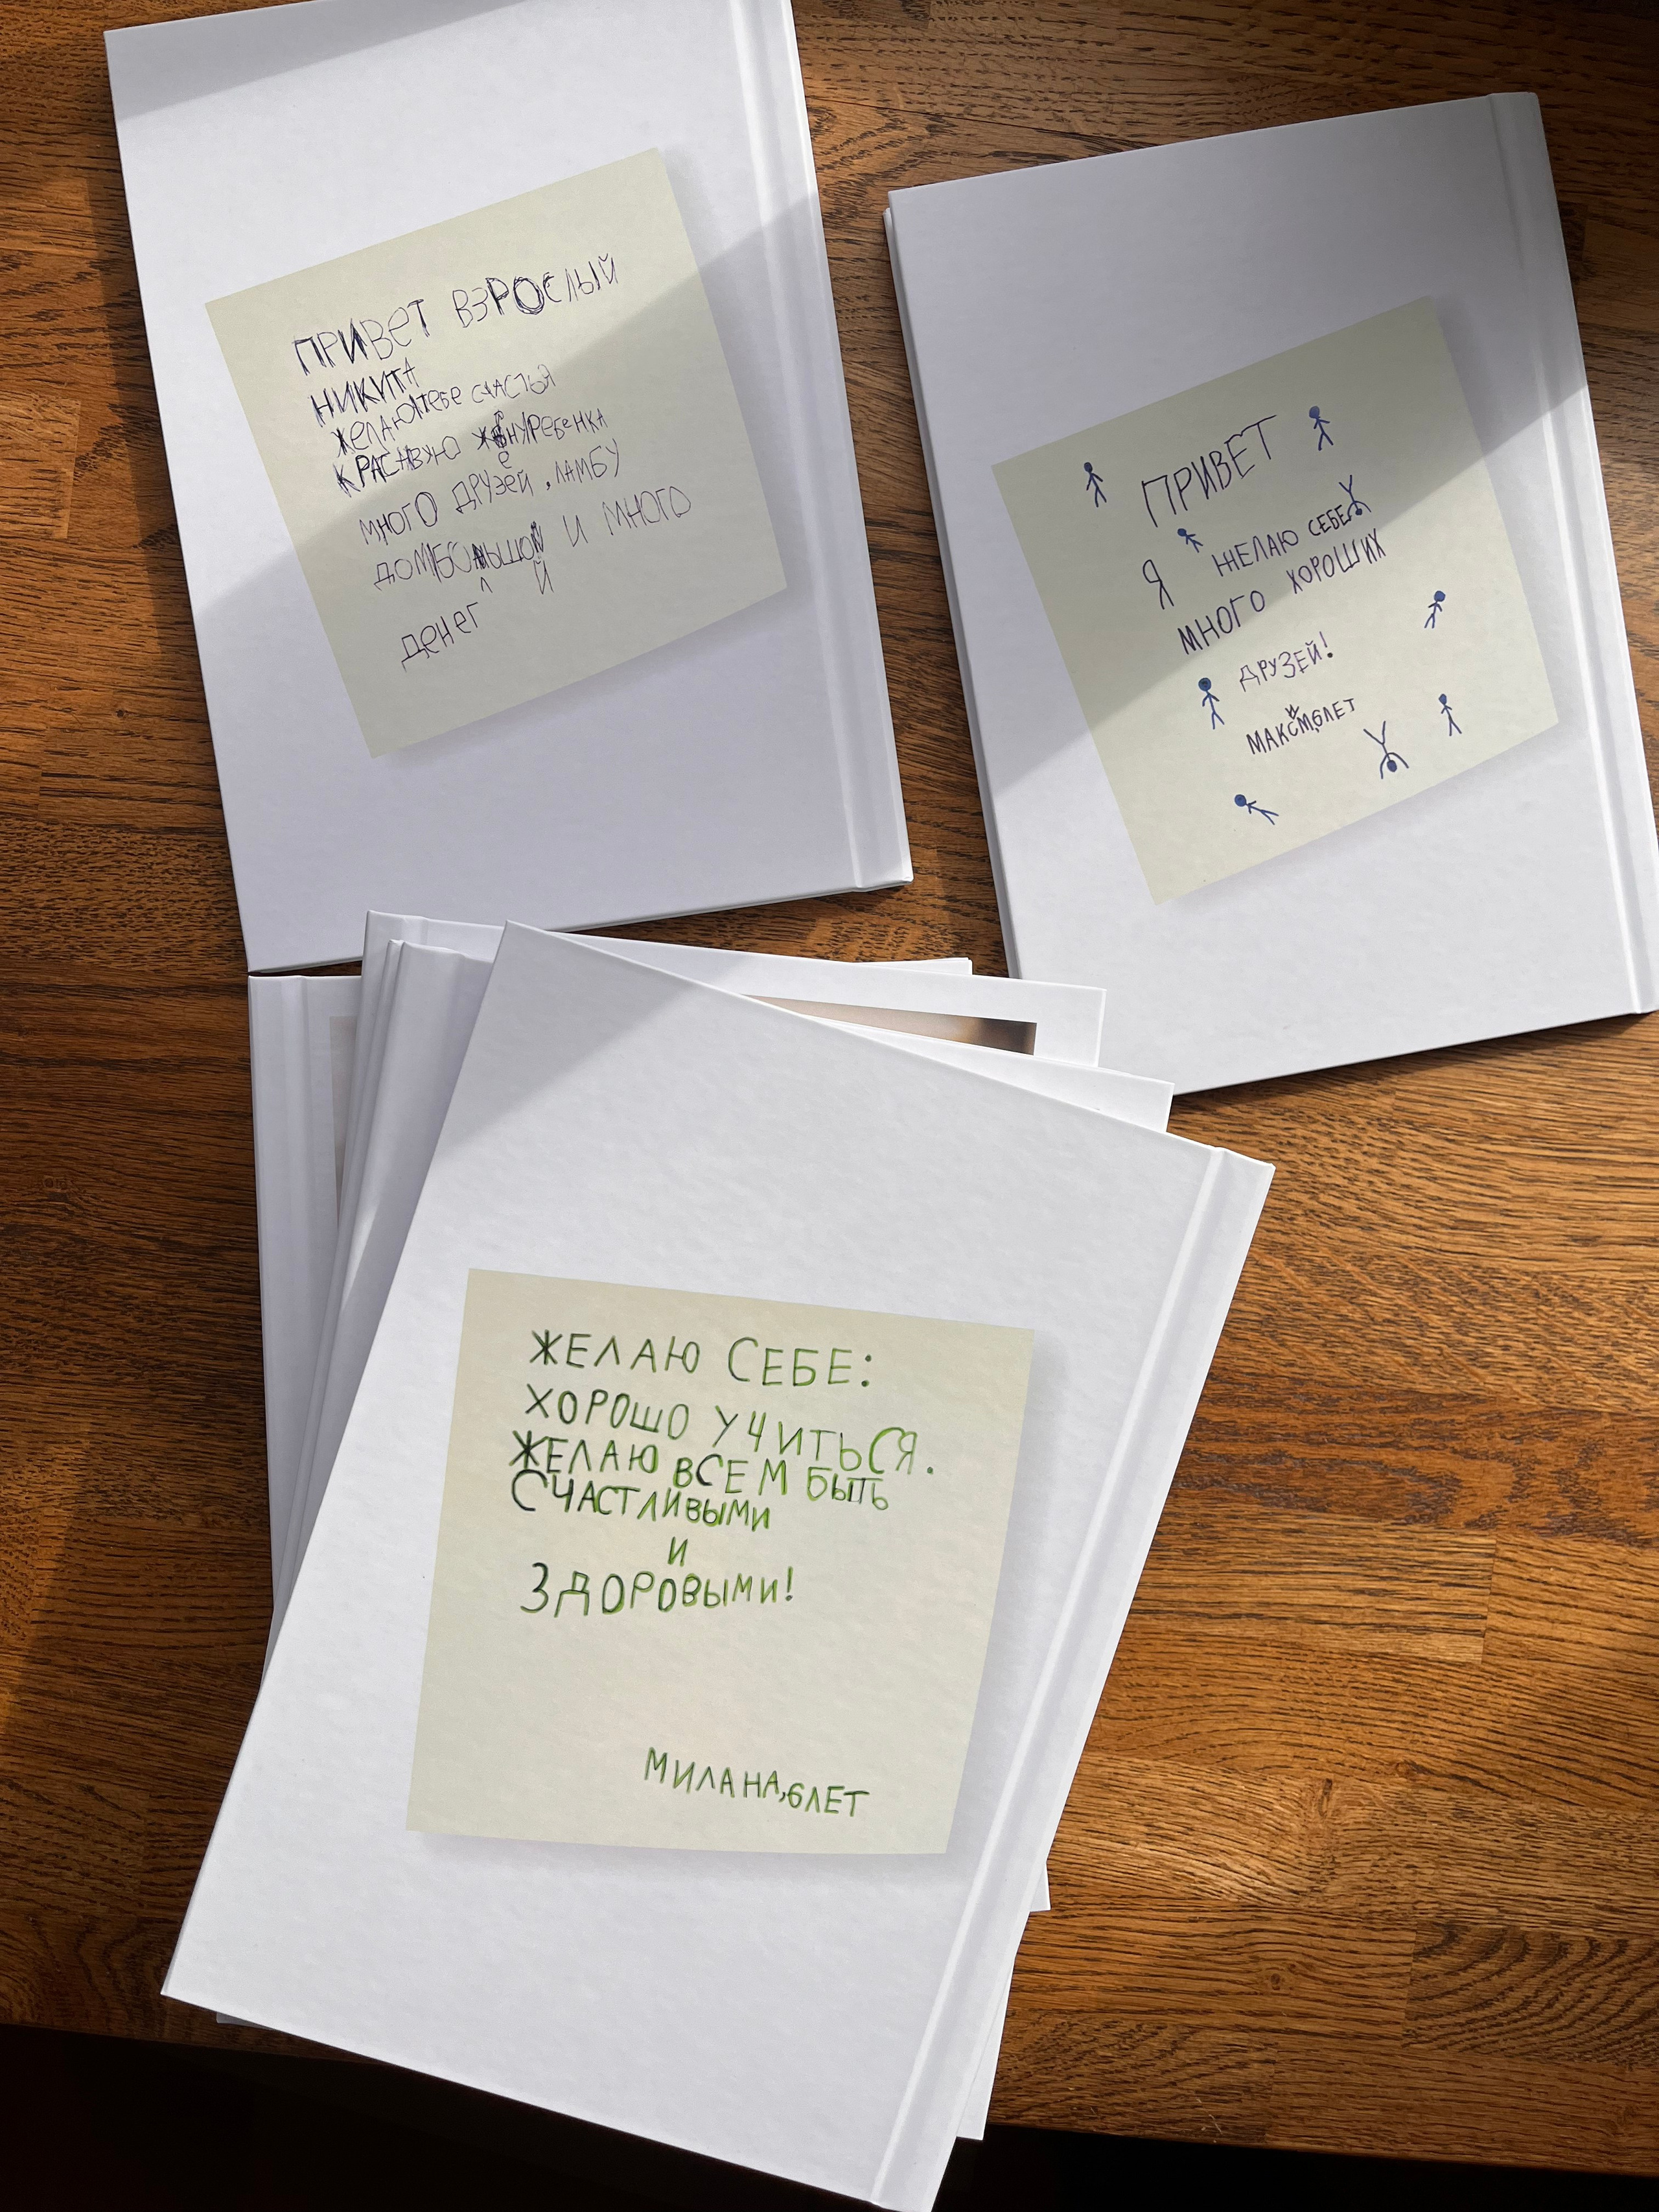 ПРИВЕТ ВЗРОСЛЫЙ
НИКИТА
ЖЕЛАЮ ТЕБЕ СЧАСТЬЯ
КРАСИВУЮ ЖЕНУ РЕБЕНКА
МНОГО ДРУЗЕЙ, ЛАМБУ
ДОМ БОЛЬШОЙ И МНОГО
ДЕНЕГ
ПРИВЕТ
Я ЖЕЛАЮ СЕБЕ
МНОГО ХОРОШИХ
ДРУЗЕЙ!
МАКСИМ, 6 ЛЕТ
ЖЕЛАЮ СЕБЕ:
ХОРОШО УЧИТЬСЯ.
ЖЕЛАЮ ВСЕМ БЫТЬ
СЧАСТЛИВЫМИ
И
ЗДОРОВЫМИ!
МИЛАНА, 6 ЛЕТ